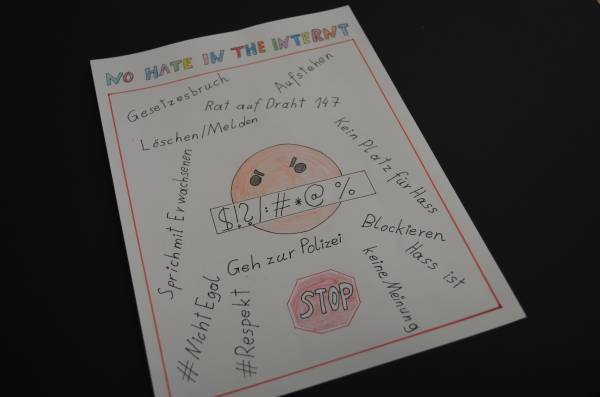 NO HATE IN THE INTERNT
Gesetzesbruch
Aufstehen
Rat auf Draht 147
Löschen/Melden
Kein Platz für Hass
Sprich mit Erwachsenen
$!?/:#*@%
Blockieren
Geh zur Polizei
Hass ist
keine Meinung
#NichtEgal
#Respekt
STOP